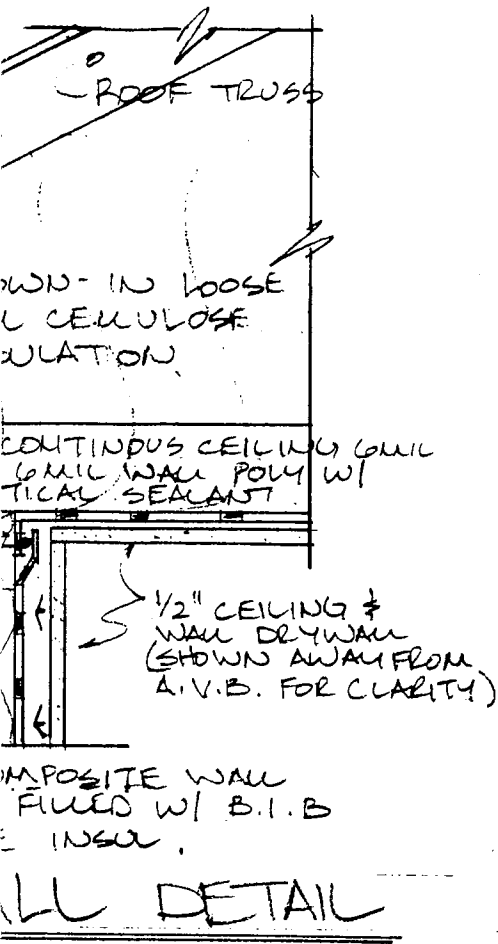 ROOF TRUSS
OWN-IN LOOSE
L CELLULOSE
ULATION
CONTINOUS CEILING 6MIL
6 MIL WALL POLY W/
TICAL SEALANT
1/2" CEILING &
WALL DRYWALL
(SHOWN AWAY FROM
A.V.B. FOR CLARITY)
OMPOSITE WALL
FILLED W/ B.I.B
E INSUL.
LL DETAIL